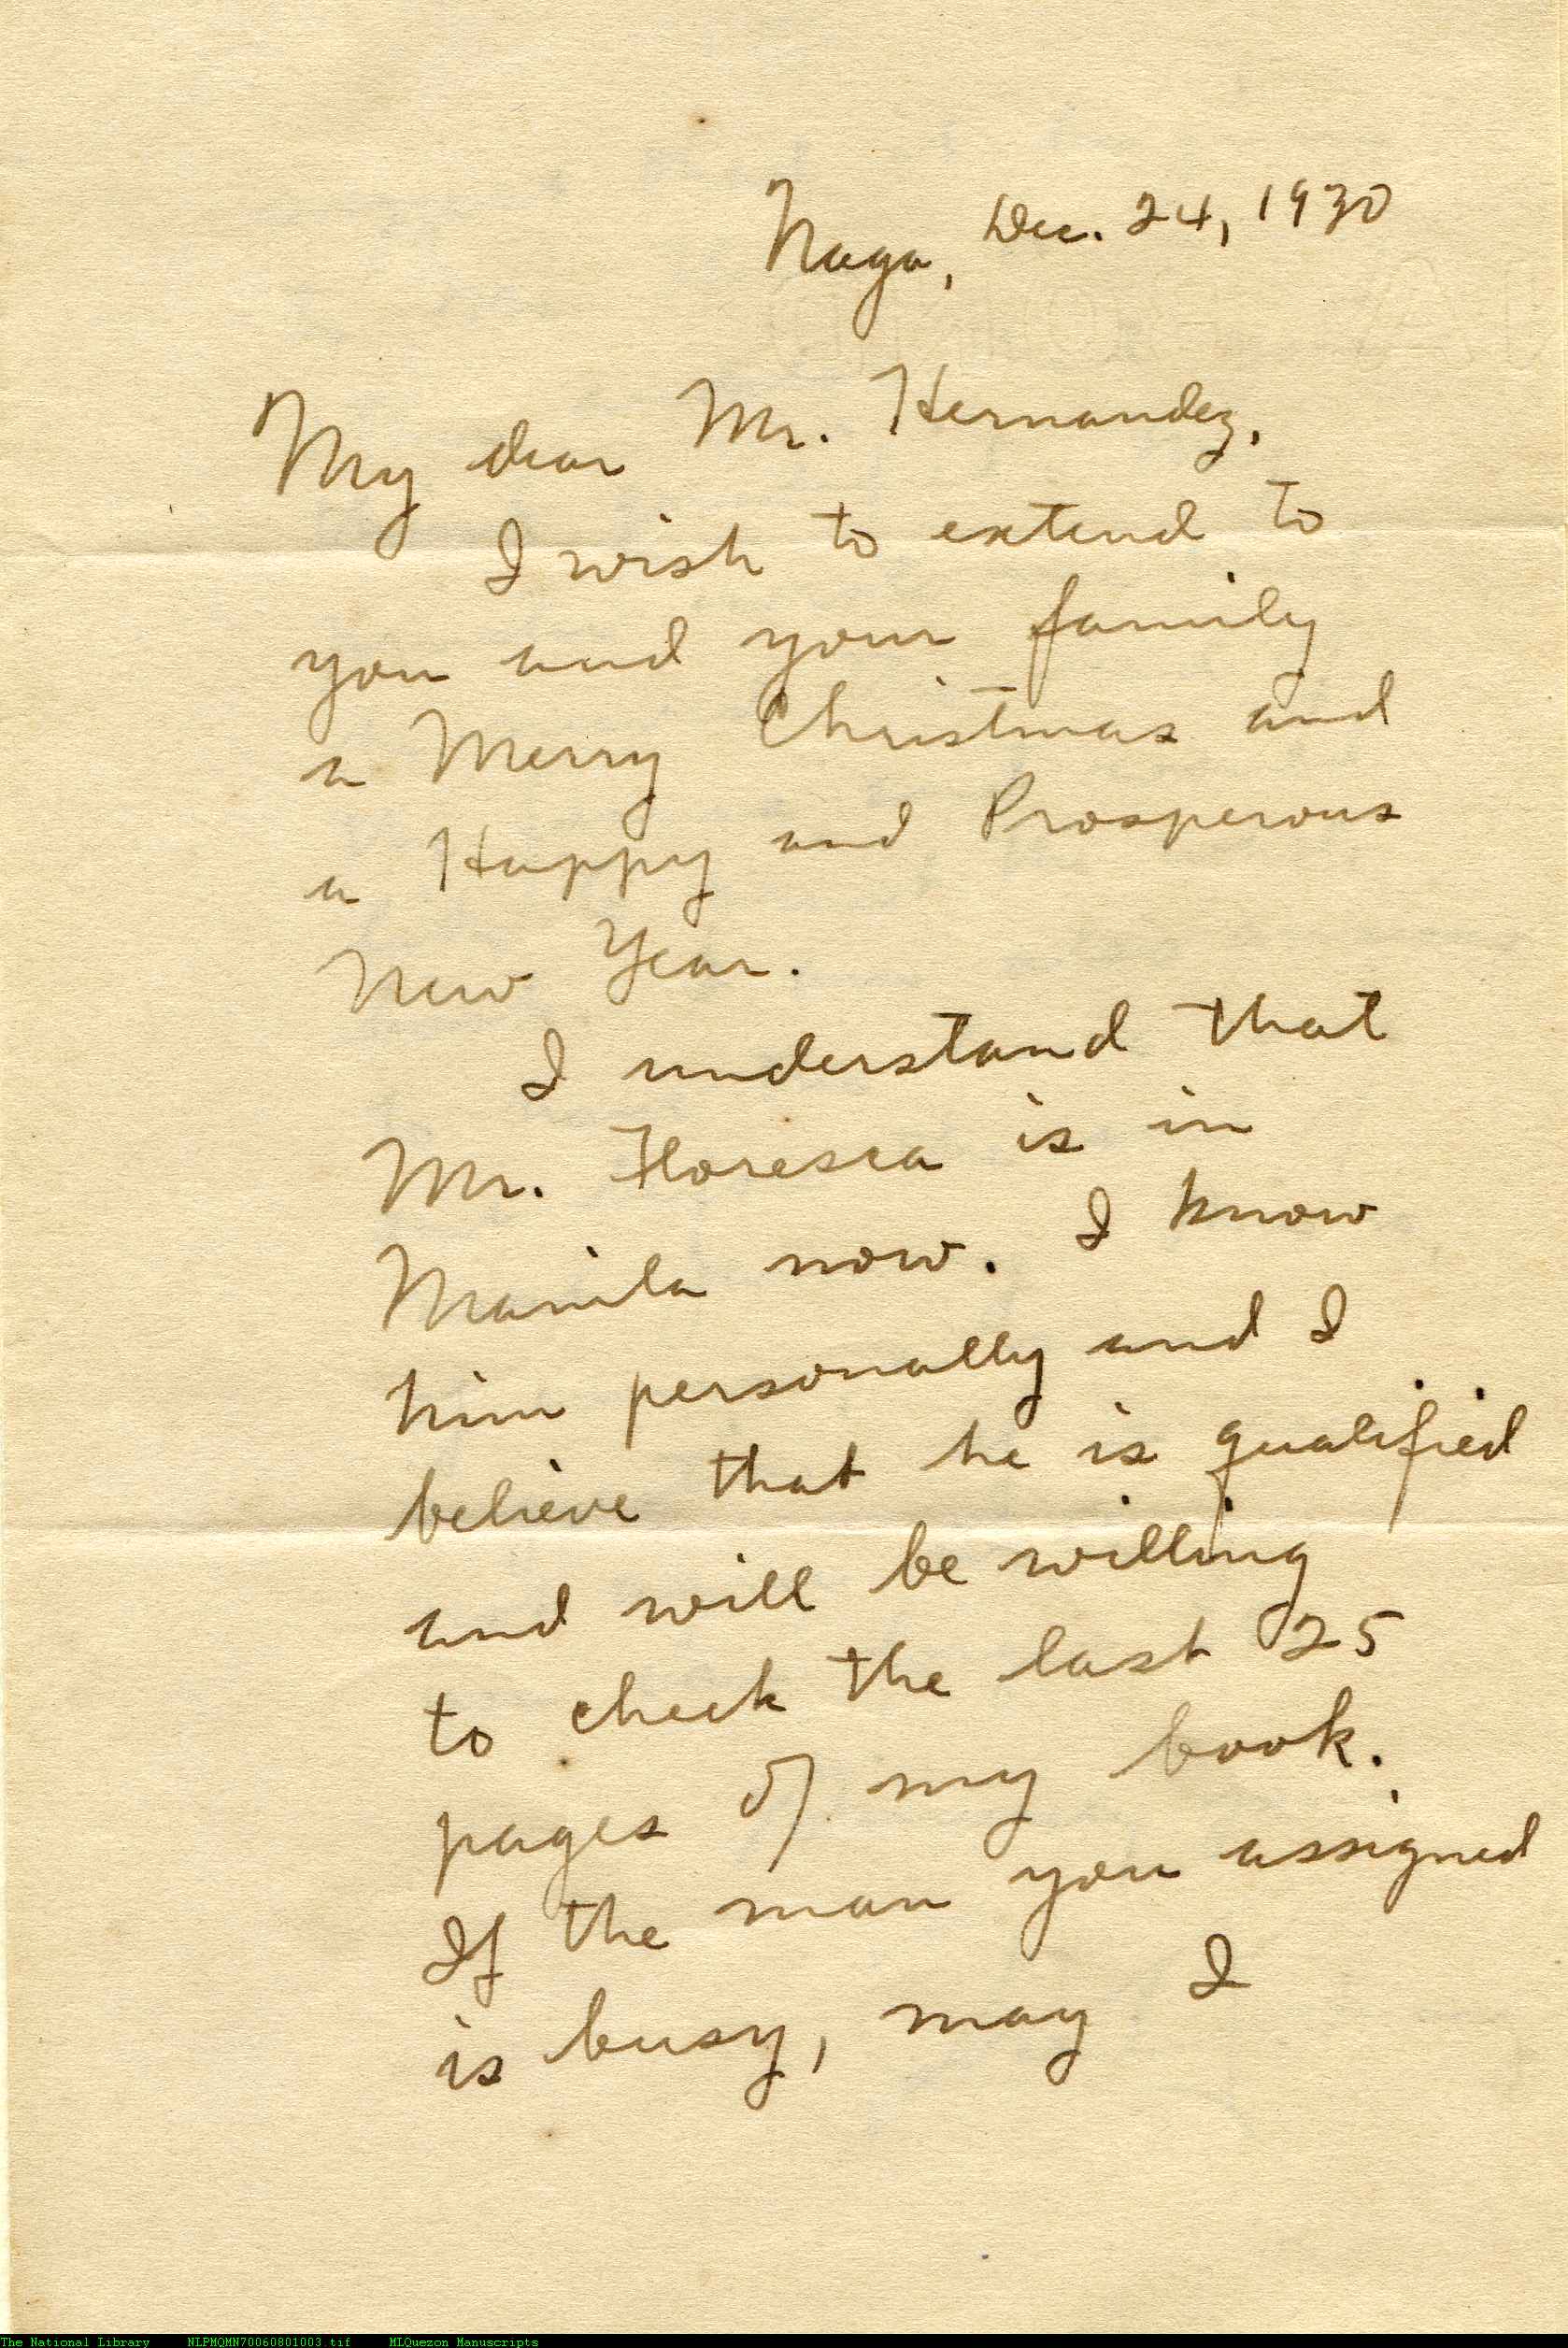 Naga, Dec. 24, 1930
My dear Mr. Hernandez,
I wish to extend to
you and your family
a Merry Christmas and
a Happy and Prosperous
New Year.
I understand that
Mr. Floresca is in
Manila now. I know
him personally and I
believe that he is qualified
and will be willing
to check the last 25
pages of my book.
If the man you assigned
is busy, may I
The National Library NLPMQMN70060801003.tif MLQuezon Manuscripts